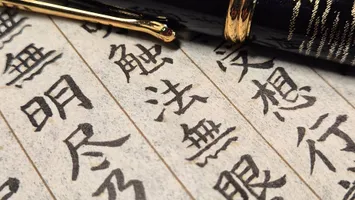 受想行
触法無眼
無明尽乃